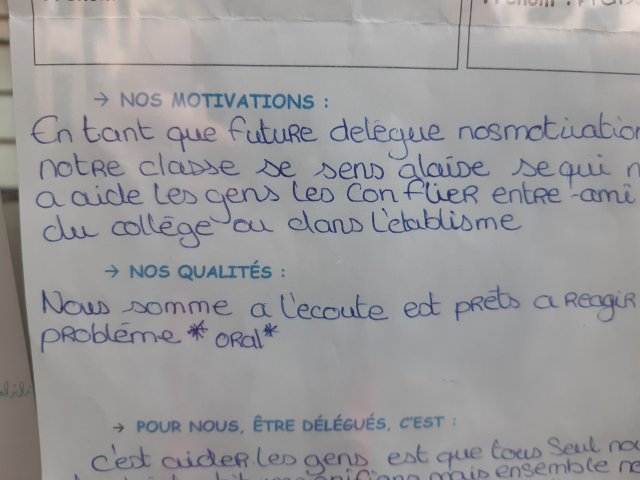 → NOS MOTIVATIONS :
En tant que future delégue nos motivation
notre classe se sens alaise se qui
a aide les gens les conflier entre-ami
du collége ou dans l'etablisme
→ NOS QUALITÉS :
Nous somme a l'ecoute est prêts a reagir
probléme *oral*
→ POUR NOUS, ÊTRE DÉLÉGUÉS, C'EST :
c'est aider les gens est que tous seul
mais ensemble